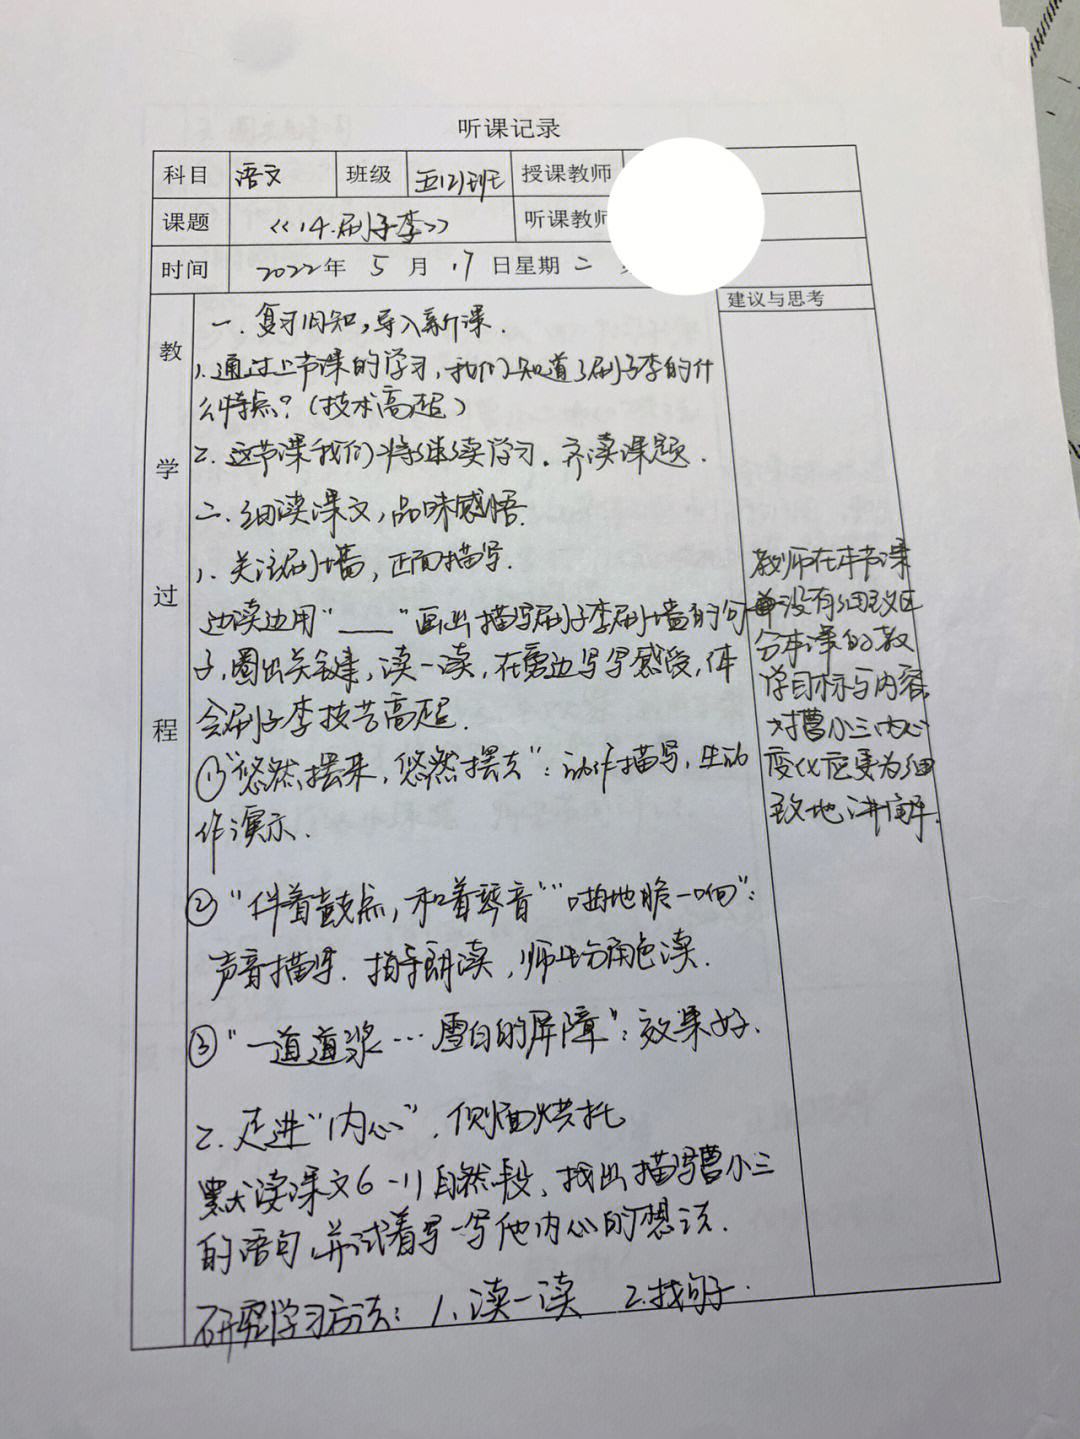 听课记录
科目 语文 班级 五(2)班 授课教师
课题 《14.刷子李》 听课教师
时间 2022年 5 月 17 日星期 二
教学过程
建议与思考
一.复习旧知,导入新课.
1.通过上节课的学习,我们知道了刷子李的什
么特点?(技术高超)
2.这节课我们将继续学习.齐读课题.
二.细读课文,品味感悟.
1.关注刷墙,正面描写.
边读边用"____"画出描写刷子李刷墙的句
子,圈出关键,读一读,在旁边写写感受,体
会刷子李技艺高超.
①"悠然摆来,悠然摆去":动作描写,生动
作演示.
②"伴着鼓点,和着琴音""啪地脆一响":
声音描写.指导朗读,师生分角色读.
③"一道道浆…雪白的屏障":效果好.
2.走进"内心",侧面烘托
默读课文6-11自然段,找出描写曹小三
的语句,并试着写一写他内心的想法.
研究学习方法: 1.读一读 2.找句子.
教师在本节课
没有细致区
分本课的教
学目标与内容,
对曹小三内心
变化应更为细
致地讲解.